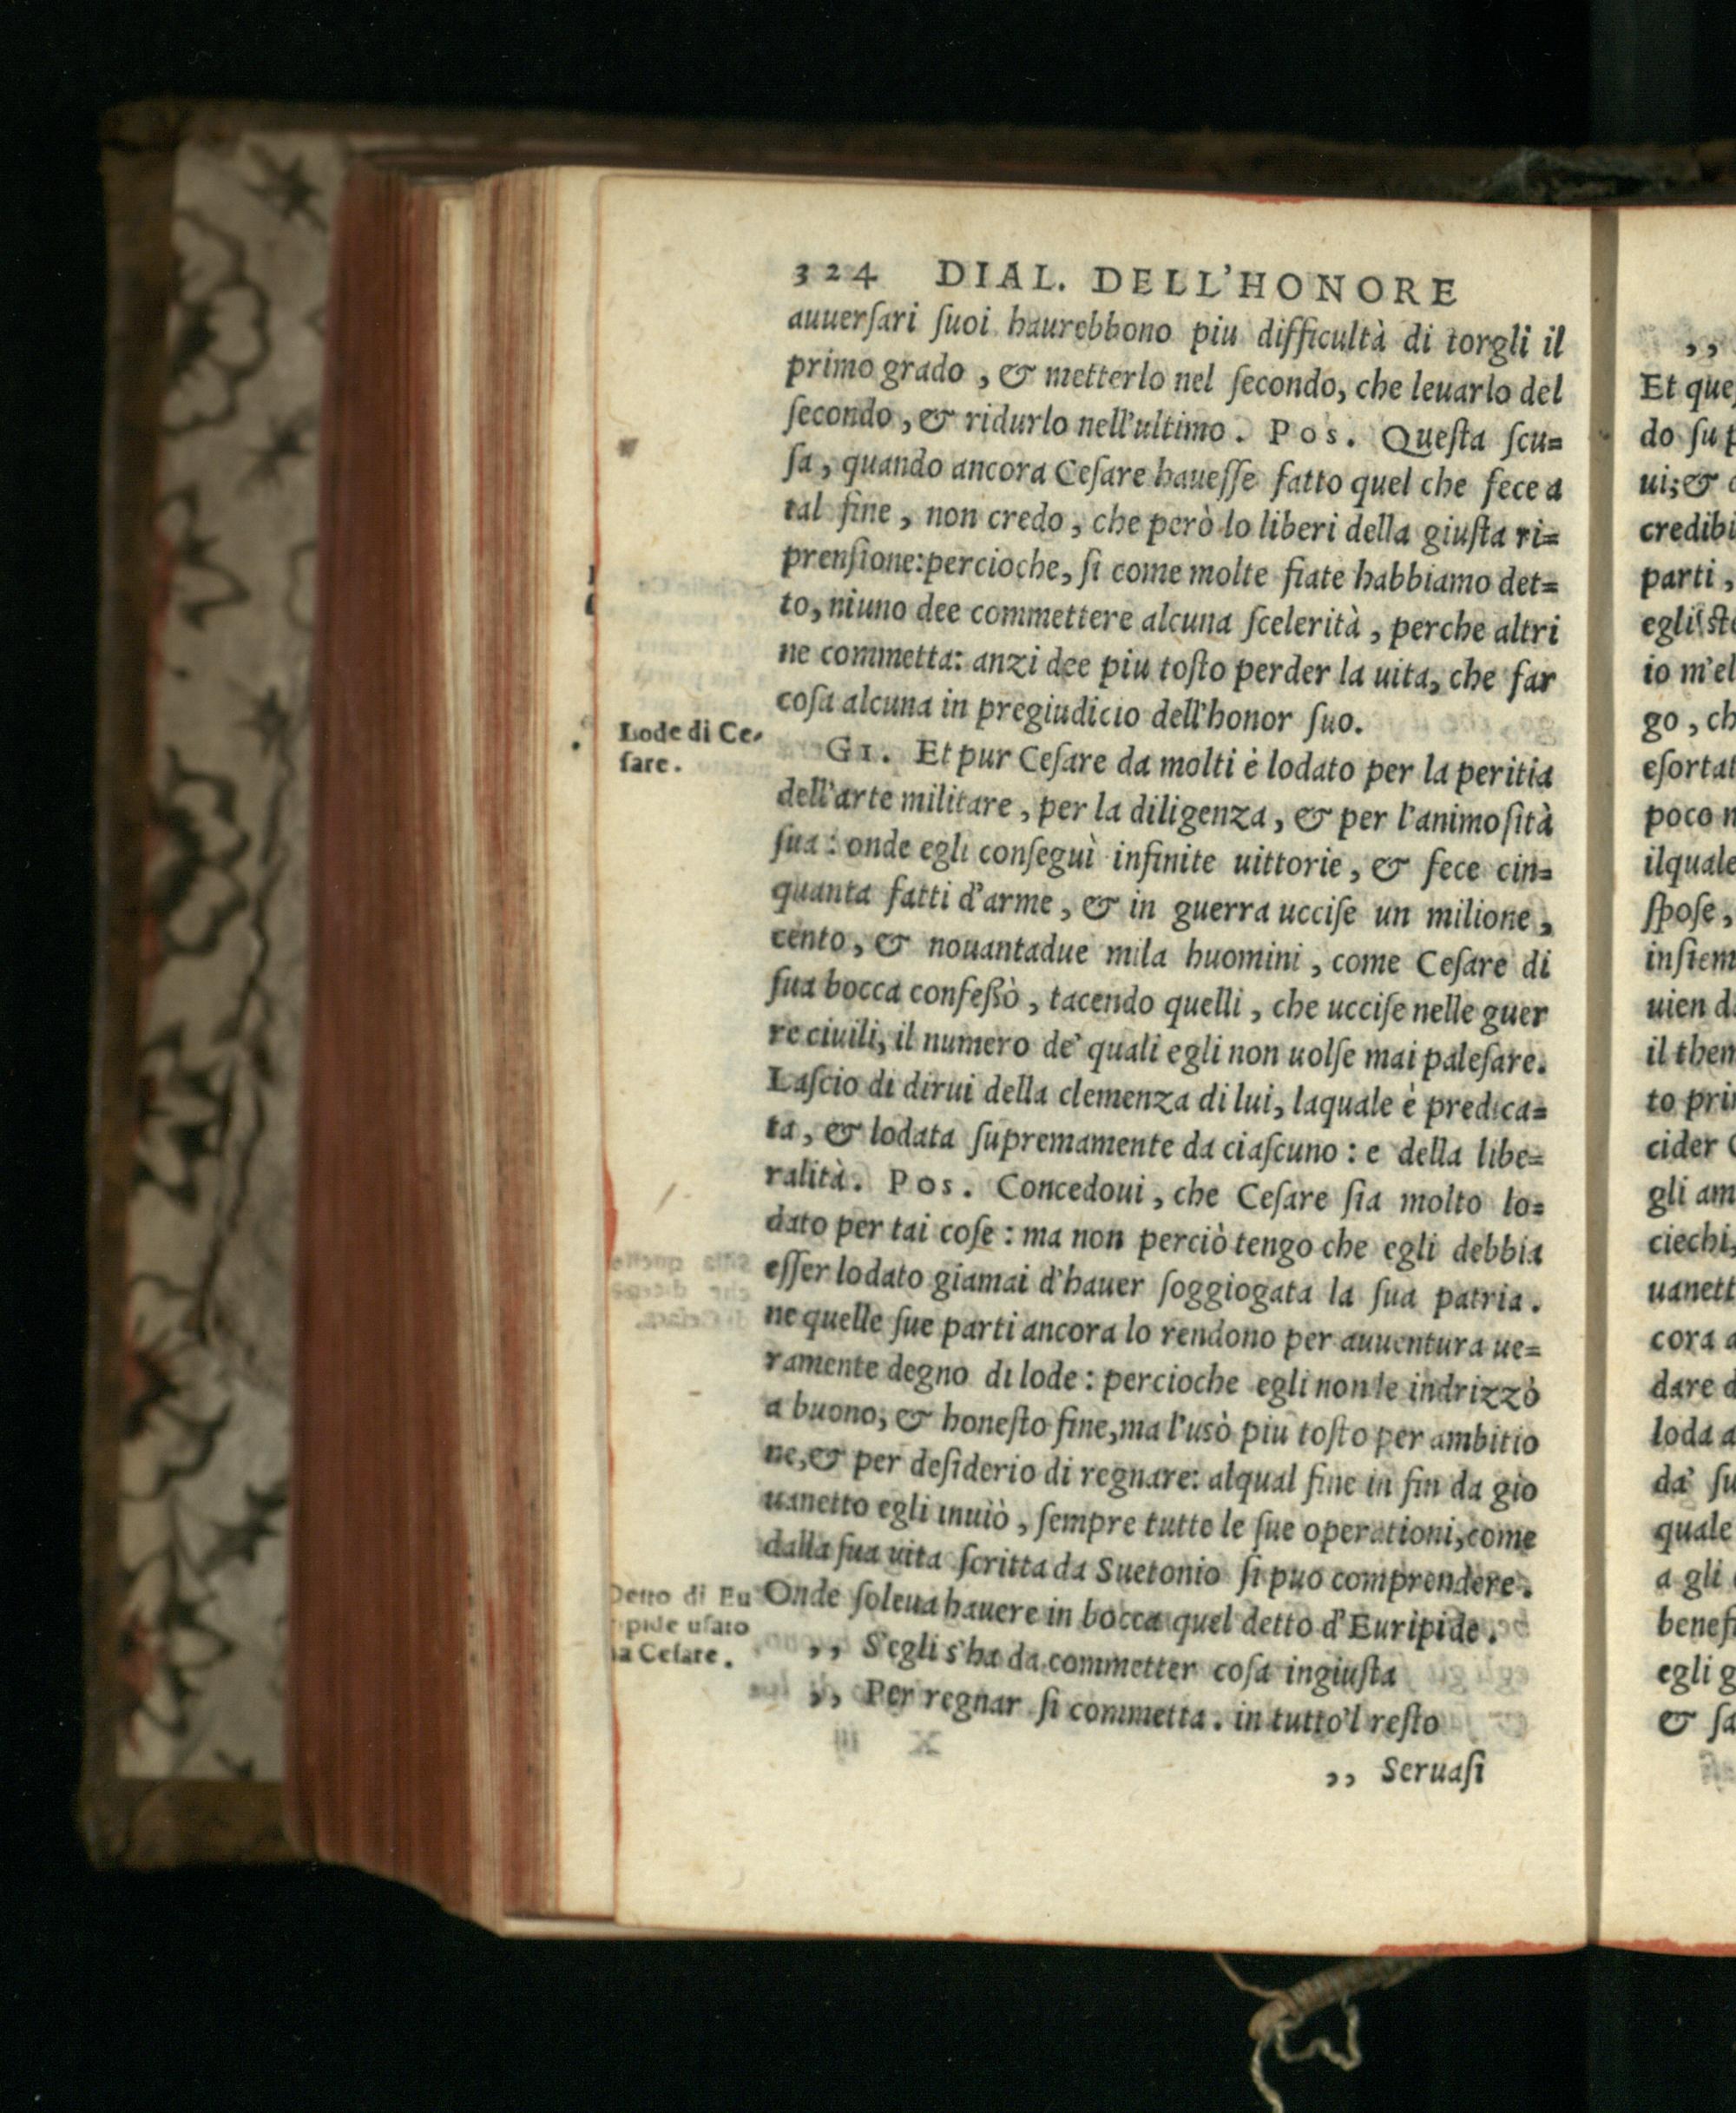 324 DIAL. DELL'HONORE
auuerſari ſuoi haurebbono piu difficultà di torgli il
primo grado, & metterlo nel ſecondo, che leuarlo del
ſecondo, & ridurlo nell'ultimo. Pos. Queſta ſcu=
ſa, quando ancora Ceſare haueſſe fatto quel che fece a
tal fine, non credo, che però lo liberi della giuſta ri=
prenſione: percioche, ſi come molte fiate habbiamo det=
to, niuno dee commettere alcuna ſcelerità, perche altri
ne commetta: anzi dee piu toſto perder la uita, che far
coſa alcuna in pregiudicio dell'honor ſuo.
Lode di Ce-
ſare.
GI. Et pur Ceſare da molti è lodato per la peritia
dell'arte militare, per la diligenza, & per l'animoſità
ſua: onde egli conſeguì infinite uittorie, & fece cin=
quanta fatti d'arme, & in guerra ucciſe un milione,
cento, & nouantadue mila huomini, come Ceſare di
ſua bocca confeßò, tacendo quelli, che ucciſe nelle guer
re ciuili, il numero de' quali egli non uolſe mai paleſare.
Laſcio di dirui della clemenza di lui, laquale è predica=
ta, & lodata ſupremamente da ciaſcuno: e della libe=
ralità. Pos. Concedoui, che Ceſare ſia molto lo=
dato per tai coſe: ma non perciò tengo che egli debbia
eſſer lodato giamai d'hauer ſoggiogata la ſua patria.
ne quelle ſue parti ancora lo rendono per auuentura ue=
ramente degno di lode: percioche egli non le indrizzò
a buono, & honeſto fine, ma l'usò piu toſto per ambitio
ne, & per deſiderio di regnare: alqual fine in fin da gio
uanetto egli inuiò, ſempre tutte le ſue operationi, come
dalla ſua uita ſcritta da Suetonio ſi puo comprendere.
Onde ſoleua hauere in bocca quel detto d'Euripide.
Detto di Eu
pide uſato
Ceſare.
,, S'egli s'ha da commetter coſa ingiuſta
,, Per regnar ſi commetta. in tutto'l reſto
,, Seruaſi
,,
Et que
do ſu
ui; &
credibi
parti,
egli ſte
io m'el
go, ch
eſortat
poco
ilquale
ſpoſe,
inſiem
uien d
il them
to pri
cider
gli am
ciechi,
uanett
cora a
dare d
loda a
da' ſu
quale
a gli
benef
egli g
& ſa